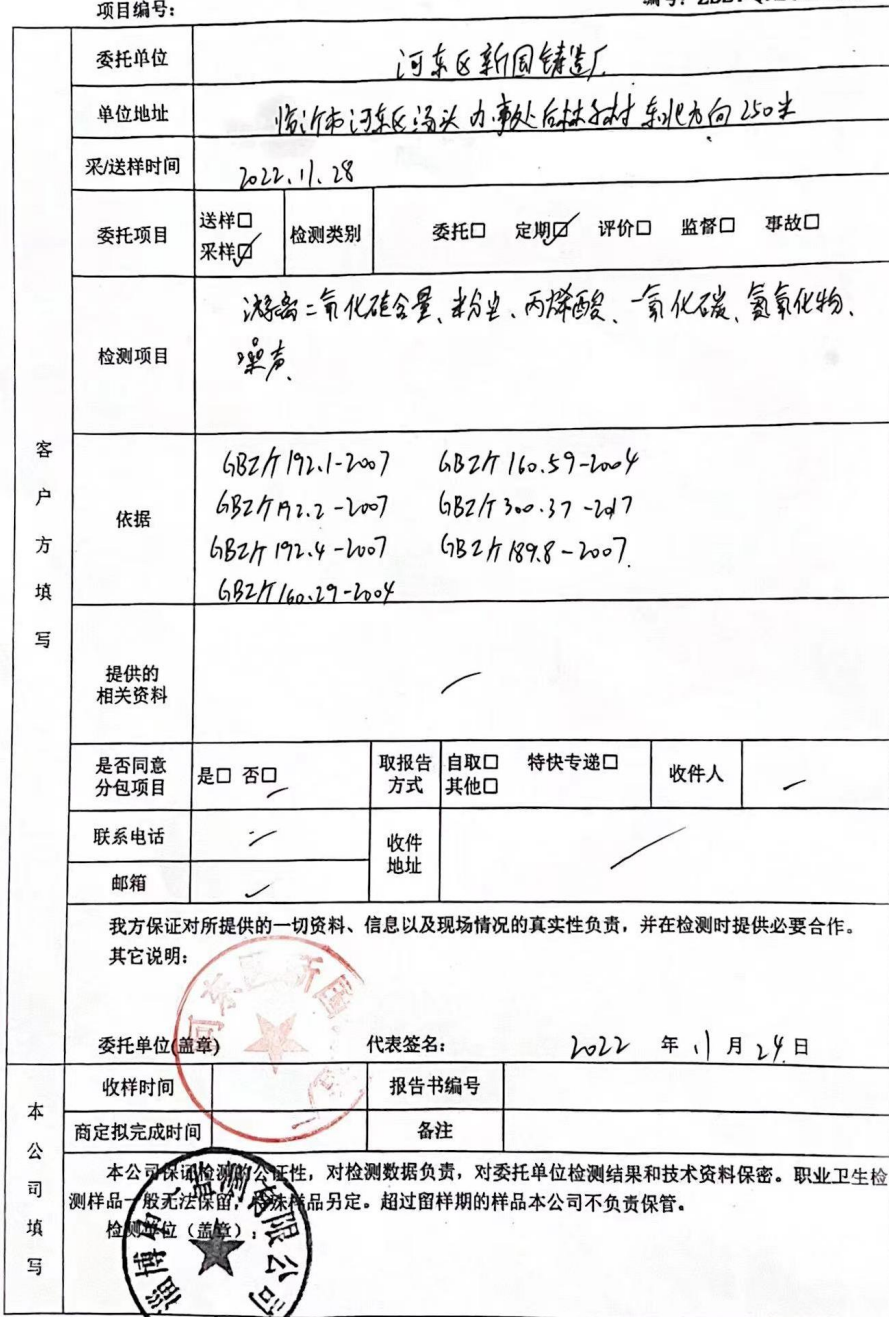 项目编号：
委托单位 河东区新园铸造厂
单位地址 临沂市河东区汤头办事处后林子村东北方向250米
采/送样时间 2022.11.28
委托项目 送样☐ 采样☑ 检测类别 委托☐ 定期☑ 评价☐ 监督☐ 事故☐
检测项目 游离二氧化硅含量、粉尘、丙烯酸、一氧化碳、氮氧化物、
噪声
客户方填写
依据
GBZ/T 192.1-2007 GBZ/T 160.59-2004
GBZ/T 192.2-2007 GBZ/T 300.37-2017
GBZ/T 192.4-2007 GBZ/T 189.8-2007
GBZ/T 160.29-2004
提供的
相关资料
是否同意
分包项目 是☐ 否☐
取报告
方式 自取☐ 特快专递☐
其他☐
收件人
联系电话
收件
地址
邮箱
我方保证对所提供的一切资料、信息以及现场情况的真实性负责，并在检测时提供必要合作。
其它说明：
委托单位(盖章) 代表签名： 2022 年 11 月 24 日
本公司填写
收样时间 报告书编号
商定拟完成时间 备注
本公司保证检测的公正性，对检测数据负责，对委托单位检测结果和技术资料保密。职业卫生检
测样品一般无法保留，特殊样品另定。超过留样期的样品本公司不负责保管。
检测单位（盖章）：